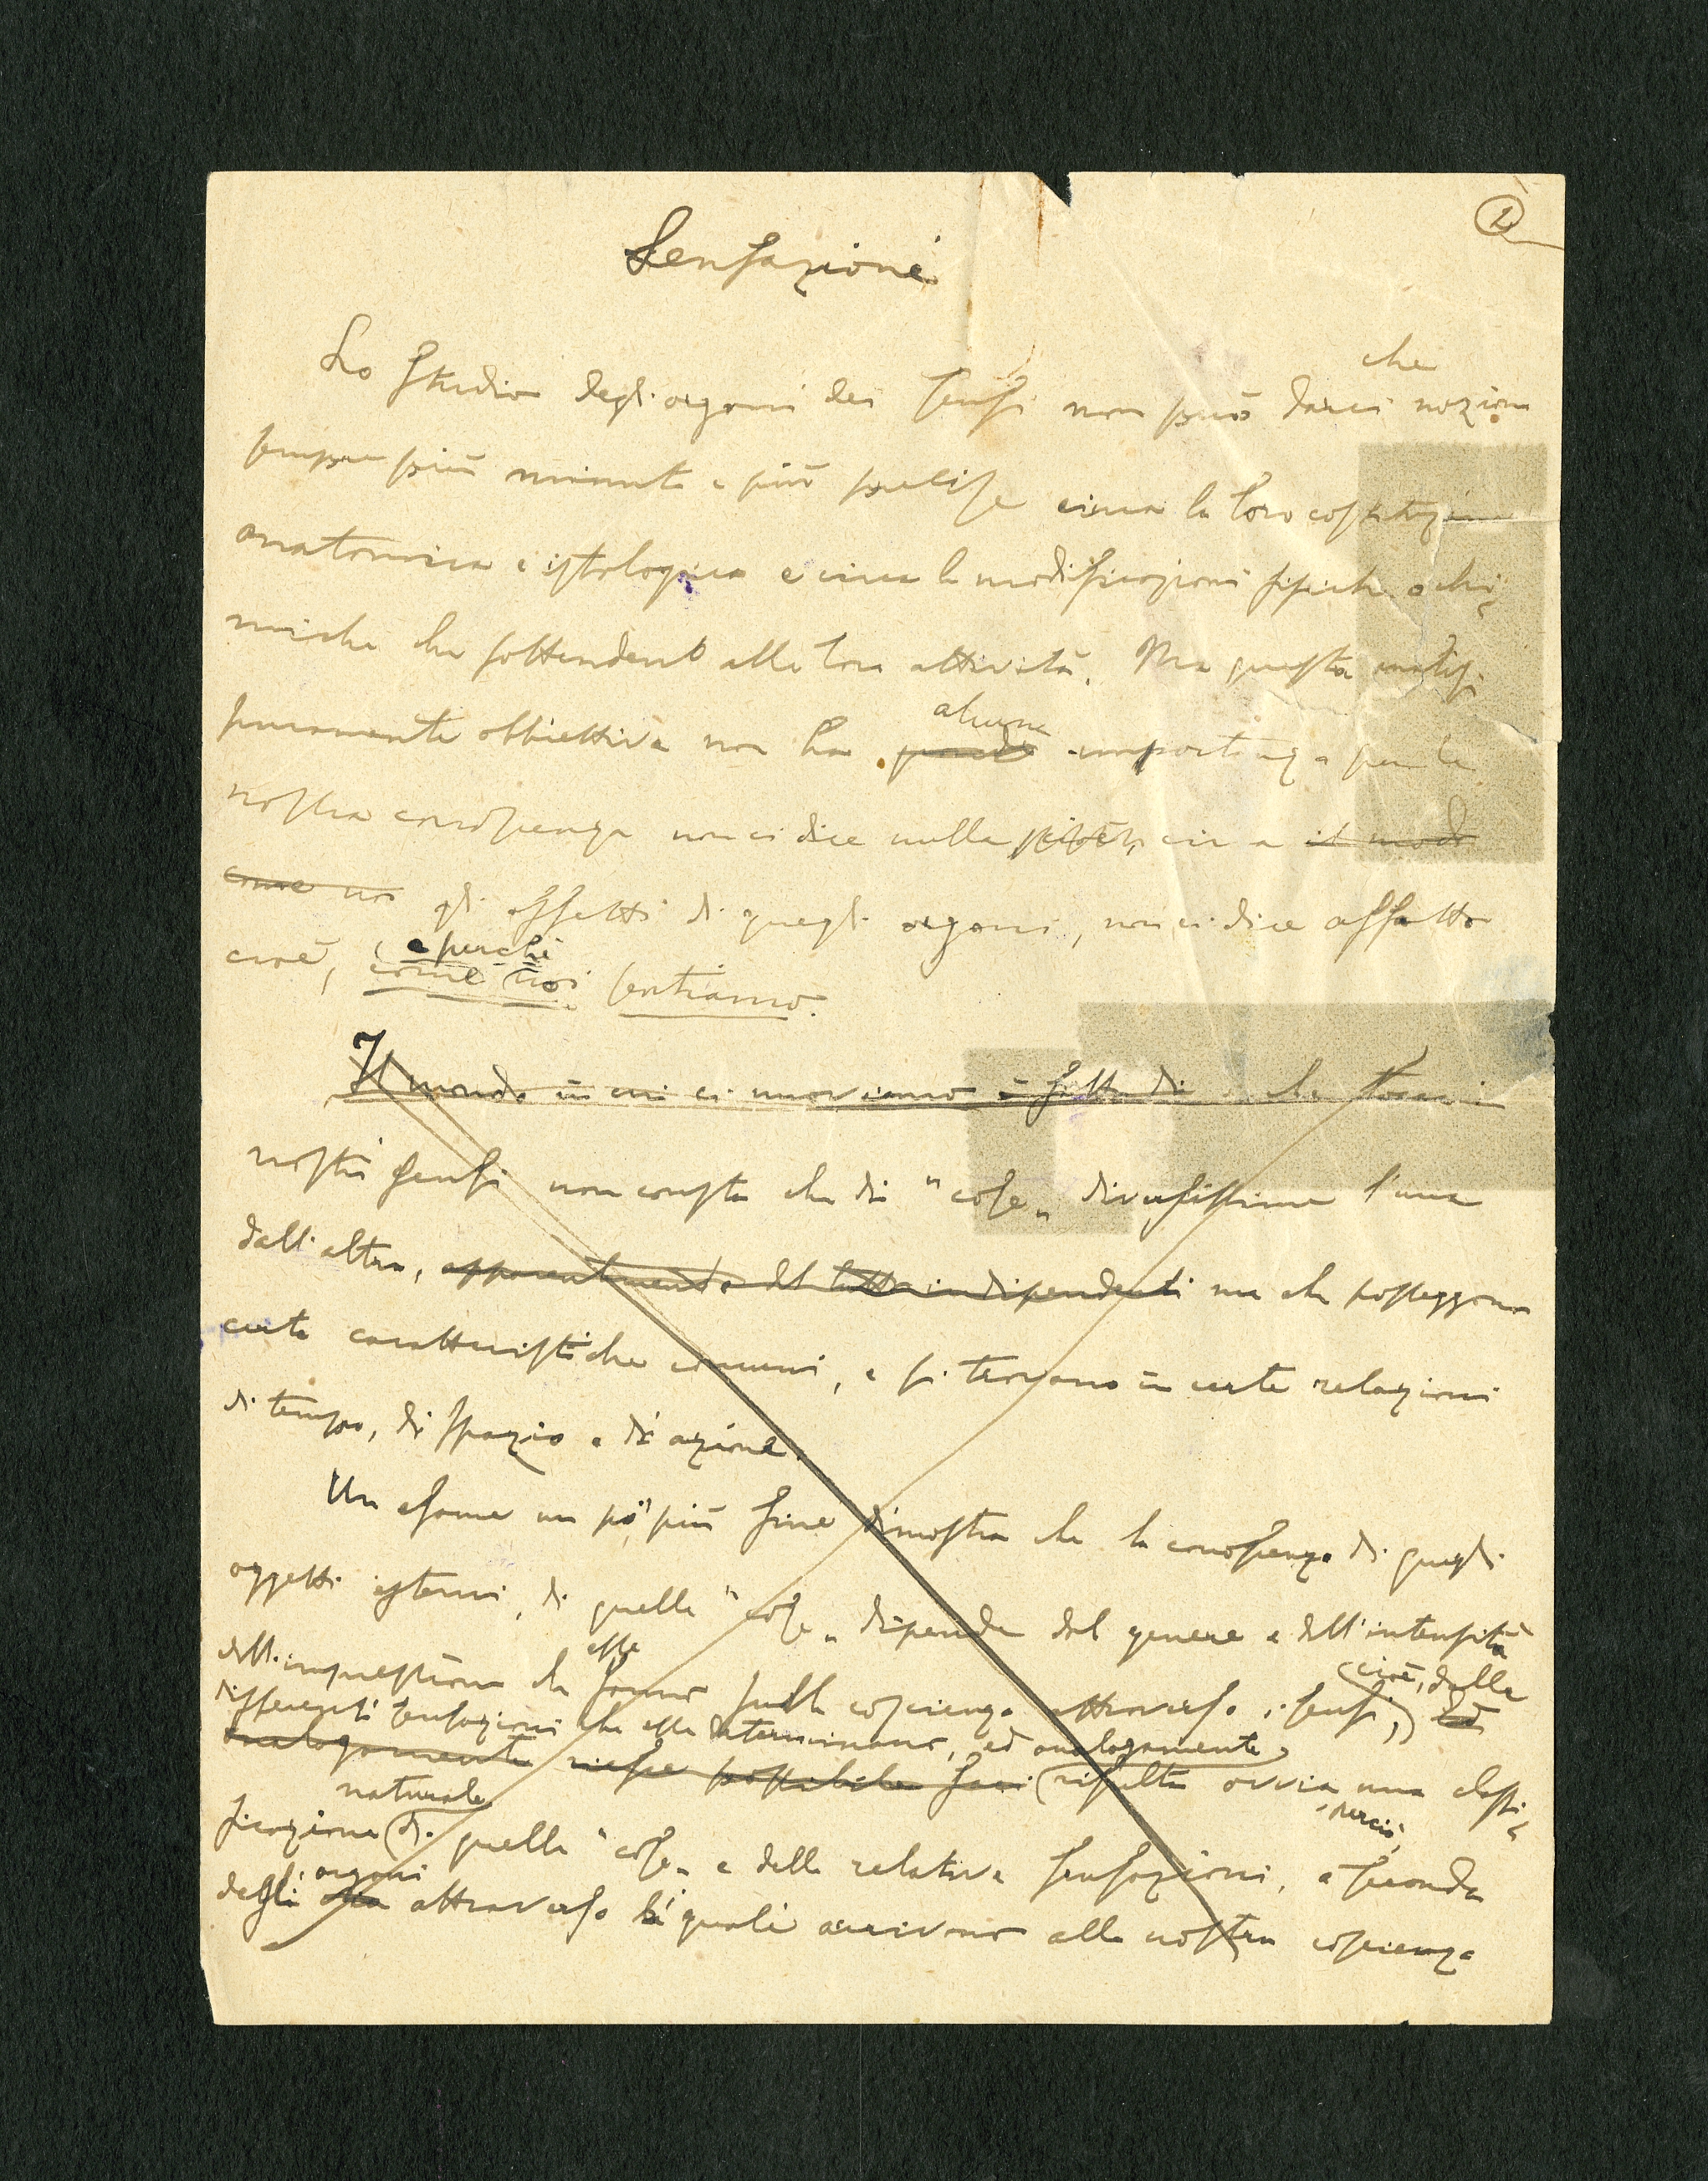 1
Sensazione
Lo studio degli organi dei sensi non può darci che nozioni
sempre più minute e più precise circa la loro costituzione
anatomica e istologica e circa le modificazioni fisiche o chi-
miche che sottendent alla loro attività. Ma questa analisi
puramente obbiettiva non ha alcuna importanza per la
nostra conoscenza non ci dice nulla circa il modo
come noi gli effetti di quegli organi, non ci dice affatto
cioè, come e perchè noi sentiamo.
Il mondo in cui ci muoviamo è fatto di che tocca i
nostri sensi non consta che di "cose" diversissime l'una
dall'altra, apparentemente del tutto indipendenti ma che posseggono
certe caratteristiche comuni, e si trovano in certe relazioni
di tempo, di spazio e di azione.
Un esame un po' più fine dimostra che la conoscenza di quegli
oggetti esterni, di quelle "cose" dipende dal genere e dall'intensità
dell'impressione che esse fanno sulla coscienza attraverso i sensi, (cioè, dalle
differenti sensazioni che esse determinano, ed analogamente) ed
analogamente riesce possibile farsi risulta ovvia una classi-
ficazione naturale di quelle "cose" e delle relative sensazioni, perciò, a seconda
degli organi attraverso i quali arrivano alla nostra coscienza